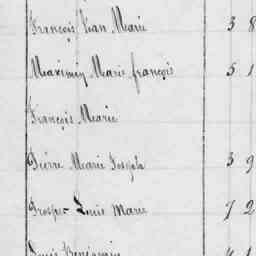 François Jean Marie 3 8
Maximin Marie françois 5 1
François Marie
Pierre Marie Joseph 3 9
Prosper Louis Marie 7 2
Louis Benjamin